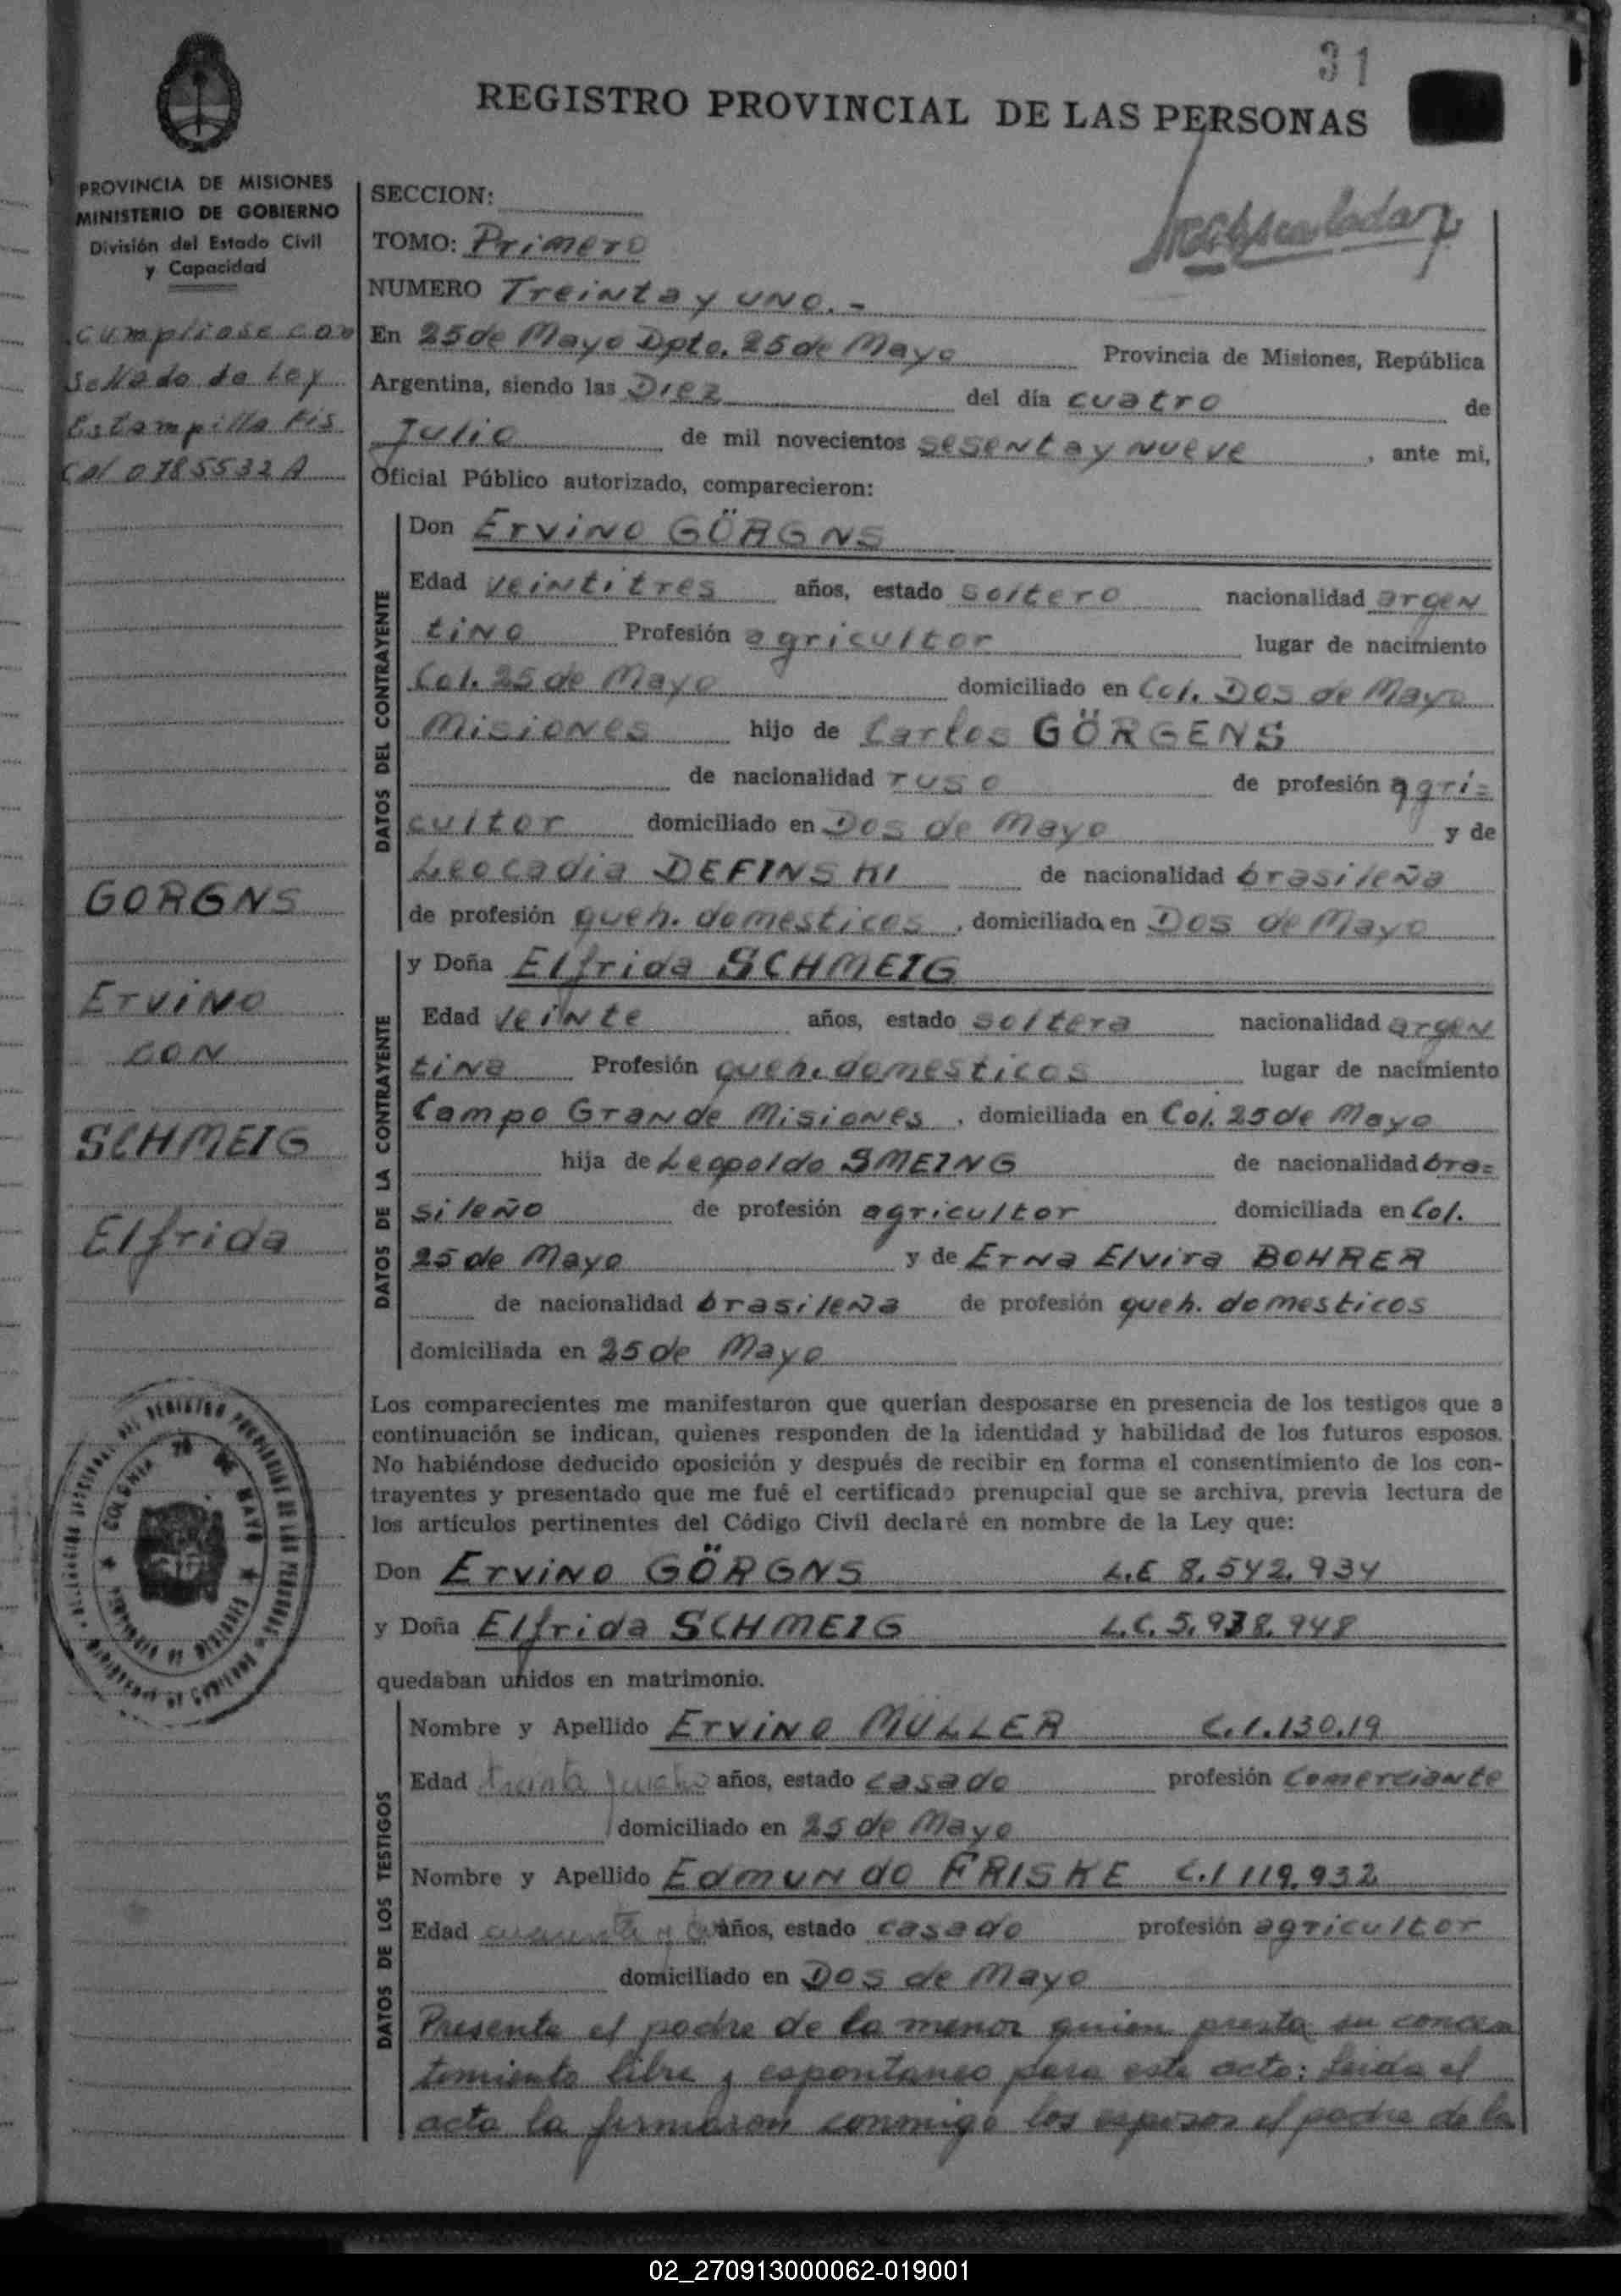 31
REGISTRO PROVINCIAL DE LAS PERSONAS
PROVINCIA DE MISIONES
MINISTERIO DE GOBIERNO
División del Estado Civil
y Capacidad
cumpliose con
sellado de Ley
Estampilla Fis
cal 0785532 A
GORGNS
Ervino
CON
SCHMEIG
Elfrida
SECCION:
TOMO: Primero
NUMERO Treinta y uno.-
En 25 de Mayo Dpto. 25 de Mayo Provincia de Misiones, República
Argentina, siendo las Diez del día cuatro de
Julio de mil novecientos sesenta y nueve, ante mi,
Oficial Público autorizado, comparecieron:
DATOS DEL CONTRAYENTE
Don Ervino GÖRGNS
Edad veintitres años, estado soltero nacionalidad argen
tino Profesión agricultor lugar de nacimiento
Col. 25 de Mayo domiciliado en Col. Dos de Mayo
Misiones hijo de Carlos GÖRGENS
de nacionalidad ruso de profesión agri=
cultor domiciliado en Dos de Mayo y de
Leocadia DEFINSKI de nacionalidad brasileña
de profesión queh. domesticos, domiciliada en Dos de Mayo
DATOS DE LA CONTRAYENTE
y Doña Elfrida SCHMEIG
Edad veinte años, estado soltera nacionalidad argen
tina Profesión queh. domesticos lugar de nacimiento
Campo Grande Misiones, domiciliada en Col. 25 de Mayo
hija de Leopoldo SMEING de nacionalidad bra=
sileño de profesión agricultor domiciliada en Col.
25 de Mayo y de Erna Elvira BOHRER
de nacionalidad brasileña de profesión queh. domesticos
domiciliada en 25 de Mayo
Los comparecientes me manifestaron que querían desposarse en presencia de los testigos que a
continuación se indican, quienes responden de la identidad y habilidad de los futuros esposos.
No habiéndose deducido oposición y después de recibir en forma el consentimiento de los con-
trayentes y presentado que me fué el certificado prenupcial que se archiva, previa lectura de
los artículos pertinentes del Código Civil declaré en nombre de la Ley que:
Don Ervino GÖRGNS L.E 8.542.934
y Doña Elfrida SCHMEIG L.C. 5.938.948
quedaban unidos en matrimonio.
DATOS DE LOS TESTIGOS
Nombre y Apellido Ervino MULLER C.I.130.19
Edad treinta y ocho años, estado casado profesión Comerciante
domiciliado en 25 de Mayo
Nombre y Apellido Edmundo FRISKE C.I 119.932
Edad cuarenta y años, estado casado profesión agricultor
domiciliado en Dos de Mayo
Presente el padre de la menor quien presta su concen
timiento libre y espontaneo para este acto: Leida el
acta la firmaron conmigo los esposos el padre de la
02_270913000062-019001